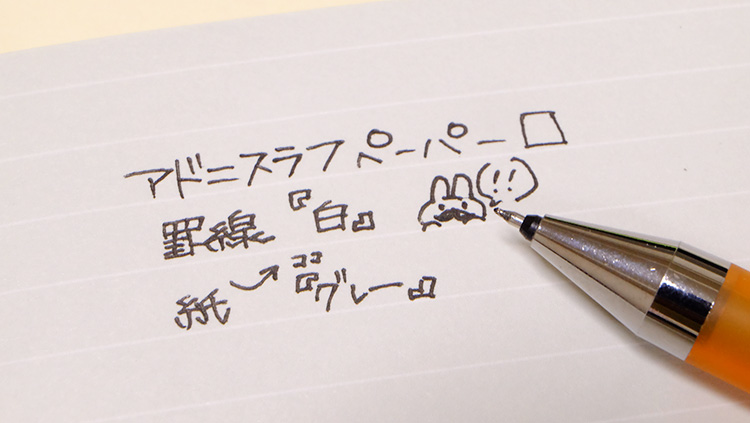 アドニスラフペーパー□
罫線『白』 (!!)
ココ
紙→『グレー』